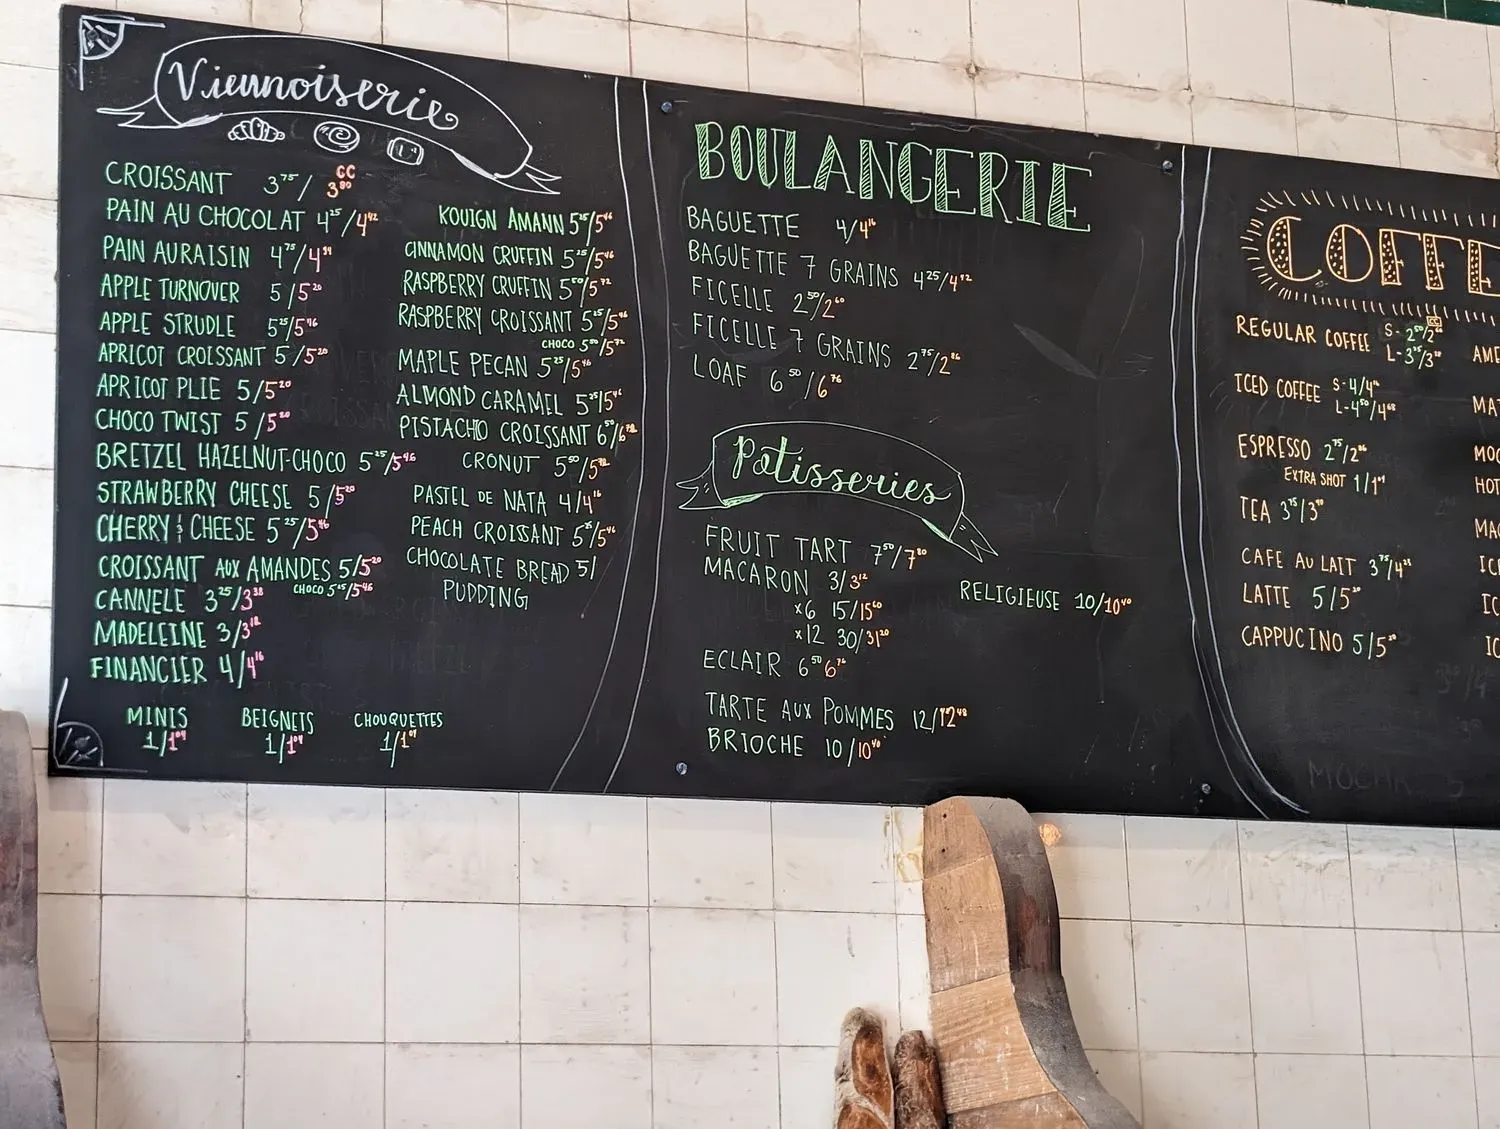 Viennoiserie
CC
CROISSANT 3⁷⁵/3⁹⁰
PAIN AU CHOCOLAT 4²⁵/4⁴²
PAIN AU RAISIN 4⁷⁵/4⁹⁴
APPLE TURNOVER 5/5²⁰
APPLE STRUDLE 5²⁵/5⁴⁶
APRICOT CROISSANT 5/5²⁰
APRICOT PLIE 5/5²⁰
CHOCO TWIST 5/5²⁰
BRETZEL HAZELNUT-CHOCO 5²⁵/5⁴⁶
STRAWBERRY CHEESE 5/5²⁰
CHERRY & CHEESE 5²⁵/5⁴⁶
CROISSANT AUX AMANDES 5/5²⁰
CHOCO 5²⁵/5⁴⁶
CANNELE 3²⁵/3³⁸
MADELEINE 3/3¹²
FINANCIER 4/4¹⁶
MINIS BEIGNETS CHOUQUETTES
1/1⁰⁴ 1/1⁰⁴ 1/1⁰⁴
KOUIGN AMANN 5²⁵/5⁴⁶
CINNAMON CRUFFIN 5²⁵/5⁴⁶
RASPBERRY CRUFFIN 5⁵⁰/5⁷²
RASPBERRY CROISSANT 5²⁵/5⁴⁶
CHOCO 5⁵⁰/5⁷²
MAPLE PECAN 5²⁵/5⁴⁶
ALMOND CARAMEL 5²⁵/5⁴⁶
PISTACHIO CROISSANT 6⁵⁰/6⁷⁶
CRONUT 5⁵⁰/5⁷²
PASTEL DE NATA 4/4¹⁶
PEACH CROISSANT 5²⁵/5⁴⁶
CHOCOLATE BREAD 5/
PUDDING
BOULANGERIE
BAGUETTE 4/4¹⁶
BAGUETTE 7 GRAINS 4²⁵/4⁴²
FICELLE 2⁵⁰/2⁶⁰
FICELLE 7 GRAINS 2⁷⁵/2⁸⁶
LOAF 6⁵⁰/6⁷⁶
Patisseries
FRUIT TART 7⁵⁰/7⁸⁰
MACARON 3/3¹²
x6 15/15⁶⁰
x12 30/31²⁰
ECLAIR 6⁵⁰ 6⁷⁶
TARTE AUX POMMES 12/12⁴⁸
BRIOCHE 10/10⁴⁰
RELIGIEUSE 10/10⁴⁰
COFFE
CC
REGULAR COFFEE S-2⁵⁰/2⁶⁰
L-3²⁵/3³⁸
ICED COFFEE S-4/4¹⁶
L-4⁵⁰/4⁶⁸
ESPRESSO 2⁷⁵/2⁸⁶
EXTRA SHOT 1/1⁰⁴
TEA 3⁷⁵/3⁹⁰
CAFE AU LAIT 3⁷⁵/4²⁵
LATTE 5/5²⁰
CAPPUCINO 5/5²⁰
AME
MAT
MOC
HOT
MAC
ICE
IC
IC
MOCHA 5